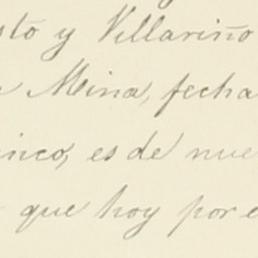 sto y Villariño
Mina, fecha
inco, es de nue
que hoy por e